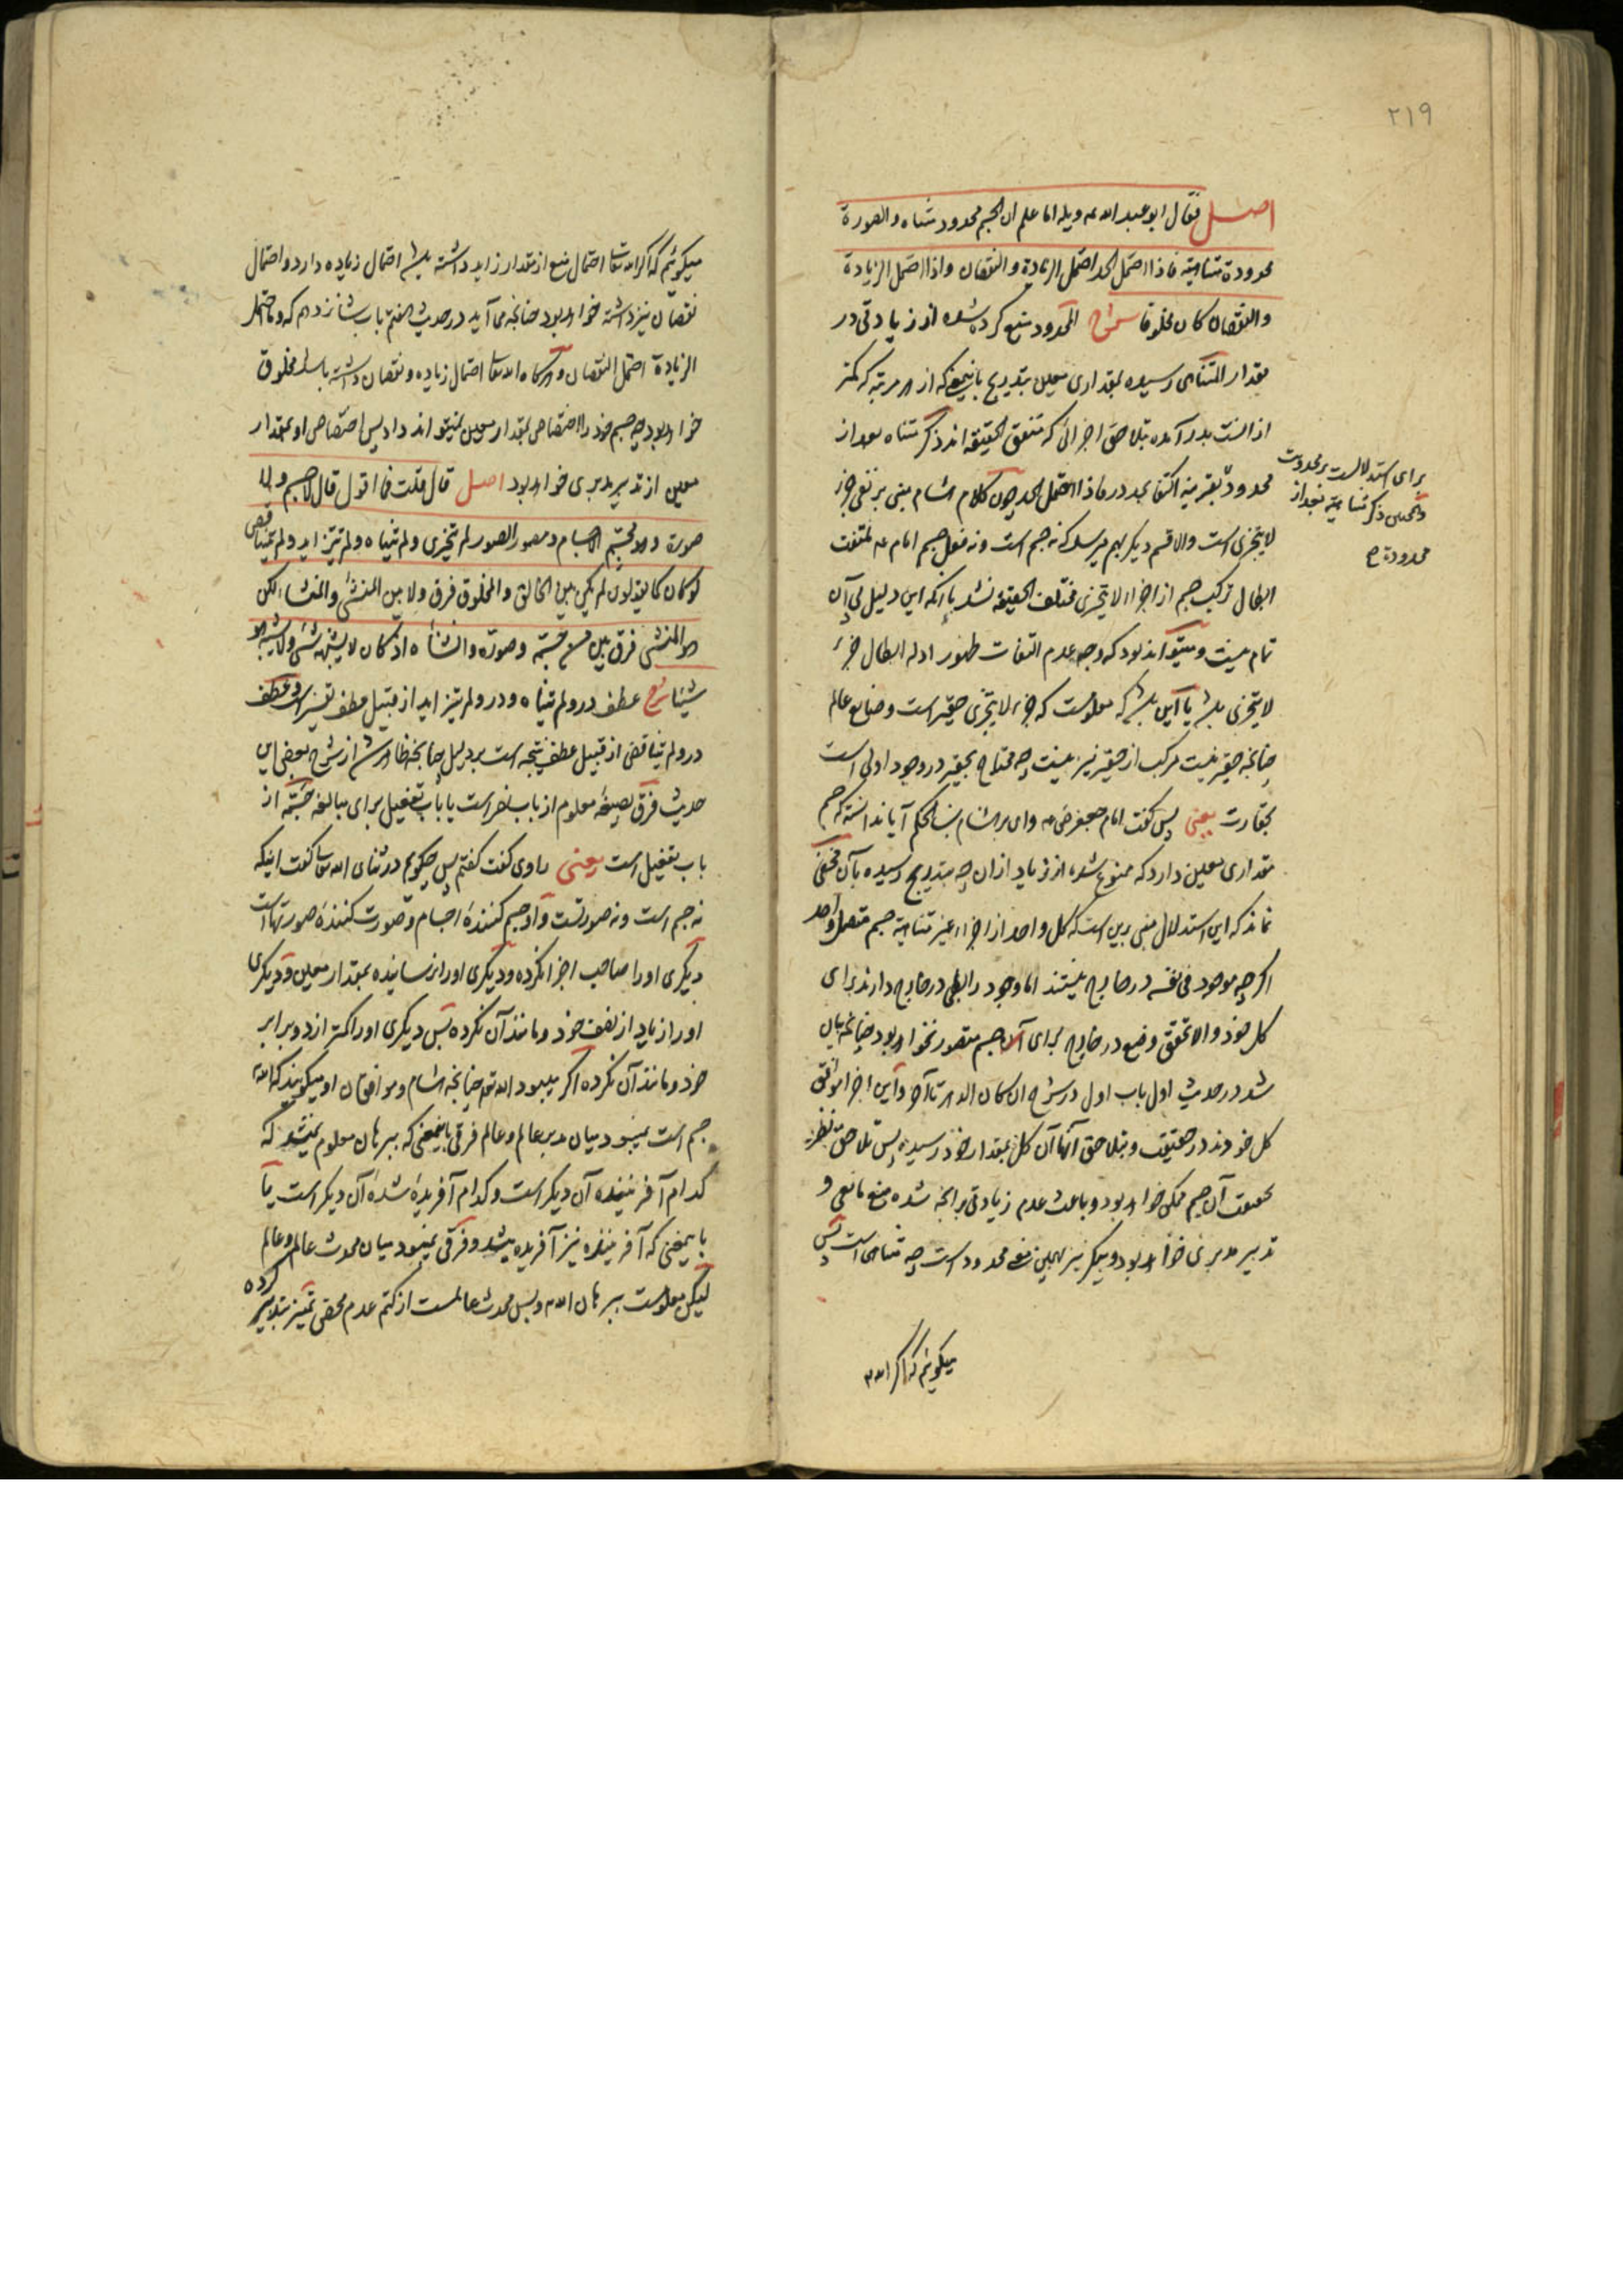 ۲۱۹
اصل فقال ابو عبد الله ع ویله اما علم ان الجسم محدود متناه والصورة
محدودة متناهیة فاذا احتمل الحد احتمل الزیادة والنقصان واذا احتمل الزیادة
والنقصان کان مخلوقا شرح المحدود منع کرده شده از زیادتی در
مقدار المتناهی رسیده بمقداری معین بتدریج باینمعنی که از هر مرتبه که کمتر
از انست بدر آمده بتلاحق اجزائی که متفق الحقیقه اند ذکر متناه بعد از
برای استدلالست بر محدودیت
وهمچنین ذکر متناهیة بعد از
محدودة ح
محدود بقرینه اکتفا بحد در فاذا احتمل الحد چون کلام هشام مبنی بر نفی جزء
لا یتجزی است والا قسم دیگر بهم میرسد که نه جسم است و نه فعل جسم امام ع ملتفت
ابطال ترکیب جسم از اجزاء لا یتجزی مختلف الحقیقه نشد با آنکه این دلیل بی آن
تمام نیست و میتواند بود که وجه عدم التفات ظهور ادله ابطال جزء
لا یتجزی باشد یا این باشد که معلومست که جزء لا یتجزی حقیر است و صانع عالم
چنانچه حقیر نیست مرکب از حقیر نیز نیست چه محتاج بحقیر در وجود اولی است
بحقارت یعنی پس گفت امام جعفر ص ع وای بر هشام بن الحکم آیا ندانسته که جسم
مقداری معین دارد که ممنوع شده از زیاد از ان چه بتدریج رسیده بآن مخفی
نماند که این استدلال مبنی برین است که کل واحد از اجزاء غیر متناهیة جسم متصل واحد
اگر چه موجود فی نفسه در خارج نیستند اما وجود رابطی در خارج دارند برای
کل خود والا تحقق وضع در خارج برای آن جسم متصور نخواهد بود چنانچه بیان
شد در حدیث اول باب اول در شرح ان کان الدهر تا آخر و این اجزا موافق
کل خودند در حقیقت و بتلاحق آنها آن کل بمقدار خود رسیده پس تلاحق نظر به
حقیقت آن جسم ممکن خواهد بود و باعث عدم زیادتی بر آنچه شده منع مانعی و
تدبیر مدبری خواهد بود و پیکر نیز بهمین نحو محدود است چه متناهی است پس
میگوئیم که اگر الله
میگوئیم که اگر الله تعالی احتمال منع از مقدار زاید داشته باشد احتمال زیاده دارد و احتمال
نقصان نیز داشته خواهد بود چنانچه می آید در حدیث هفتم باب شانزدهم که وما احتمل
الزیادة احتمل النقصان و هرگاه الله تعالی احتمال زیاده و نقصان داشته باشد مخلوق
خواهد بود چه جسم خود را اختصاص بمقدار معین نمیتواند داد پس اختصاص او بمقدار
معین از تدبیر مدبری خواهد بود اصل قال قلت فما اقول قال لا جسم ولا
صورة وهو مجسم الاجسام و مصور الصور لم یتجزی ولم یتناه ولم یتزاید ولم یتناقص
لو کان کما یقولون لم یکن بین الخالق والمخلوق فرق ولا بین المنشئ والمنشاء لکن
هو المنشئ فرق بین من جسمه وصوره وانشأه اذ کان لا یشبهه شئ ولا یشبه هو
شیئا شرح عطف در ولم یتناه و در ولم یتزاید از قبیل عطف تفسیر است و عطف
در ولم یتناقص از قبیل عطف نتیجه است بر دلیل چنانچه ظاهر شد از شرح بعض این
حدیث فرق بصیغه معلوم از باب نصر است یا باب تفعیل برای مبالغه جسمه از
باب تفعیل است یعنی راوی گفت گفتم پس چه گویم در ثنای الله تعالی گفت اینکه
نه جسم است و نه صورتست و او جسم کننده اجسام و صورت کننده صورتهاست
دیگری او را صاحب اجزا نکرده و دیگری او را نرسانیده بمقدار معین و دیگری
او را زیاد از نصف خود و مانند آن نکرده پس دیگری او را کمتر از دو برابر
خود و مانند آن نکرده اگر میبود الله تع چنانچه هشام و موافقان او میگویند که الله
جسم است نمیبود میان مدبر عالم و عالم فرقی باینمعنی که ببرهان معلوم نمیشد که
کدام آفریننده آن دیگر است و کدام آفریده شده آن دیگر است یا
باینمعنی که آفریننده نیز آفریده میشد و فرقی نمیبود میان محدث عالم و عالم
لیکن معلومست ببرهان الله و بس محدث عالمست از کتم عدم محض تمییز بتدبیر
کرده